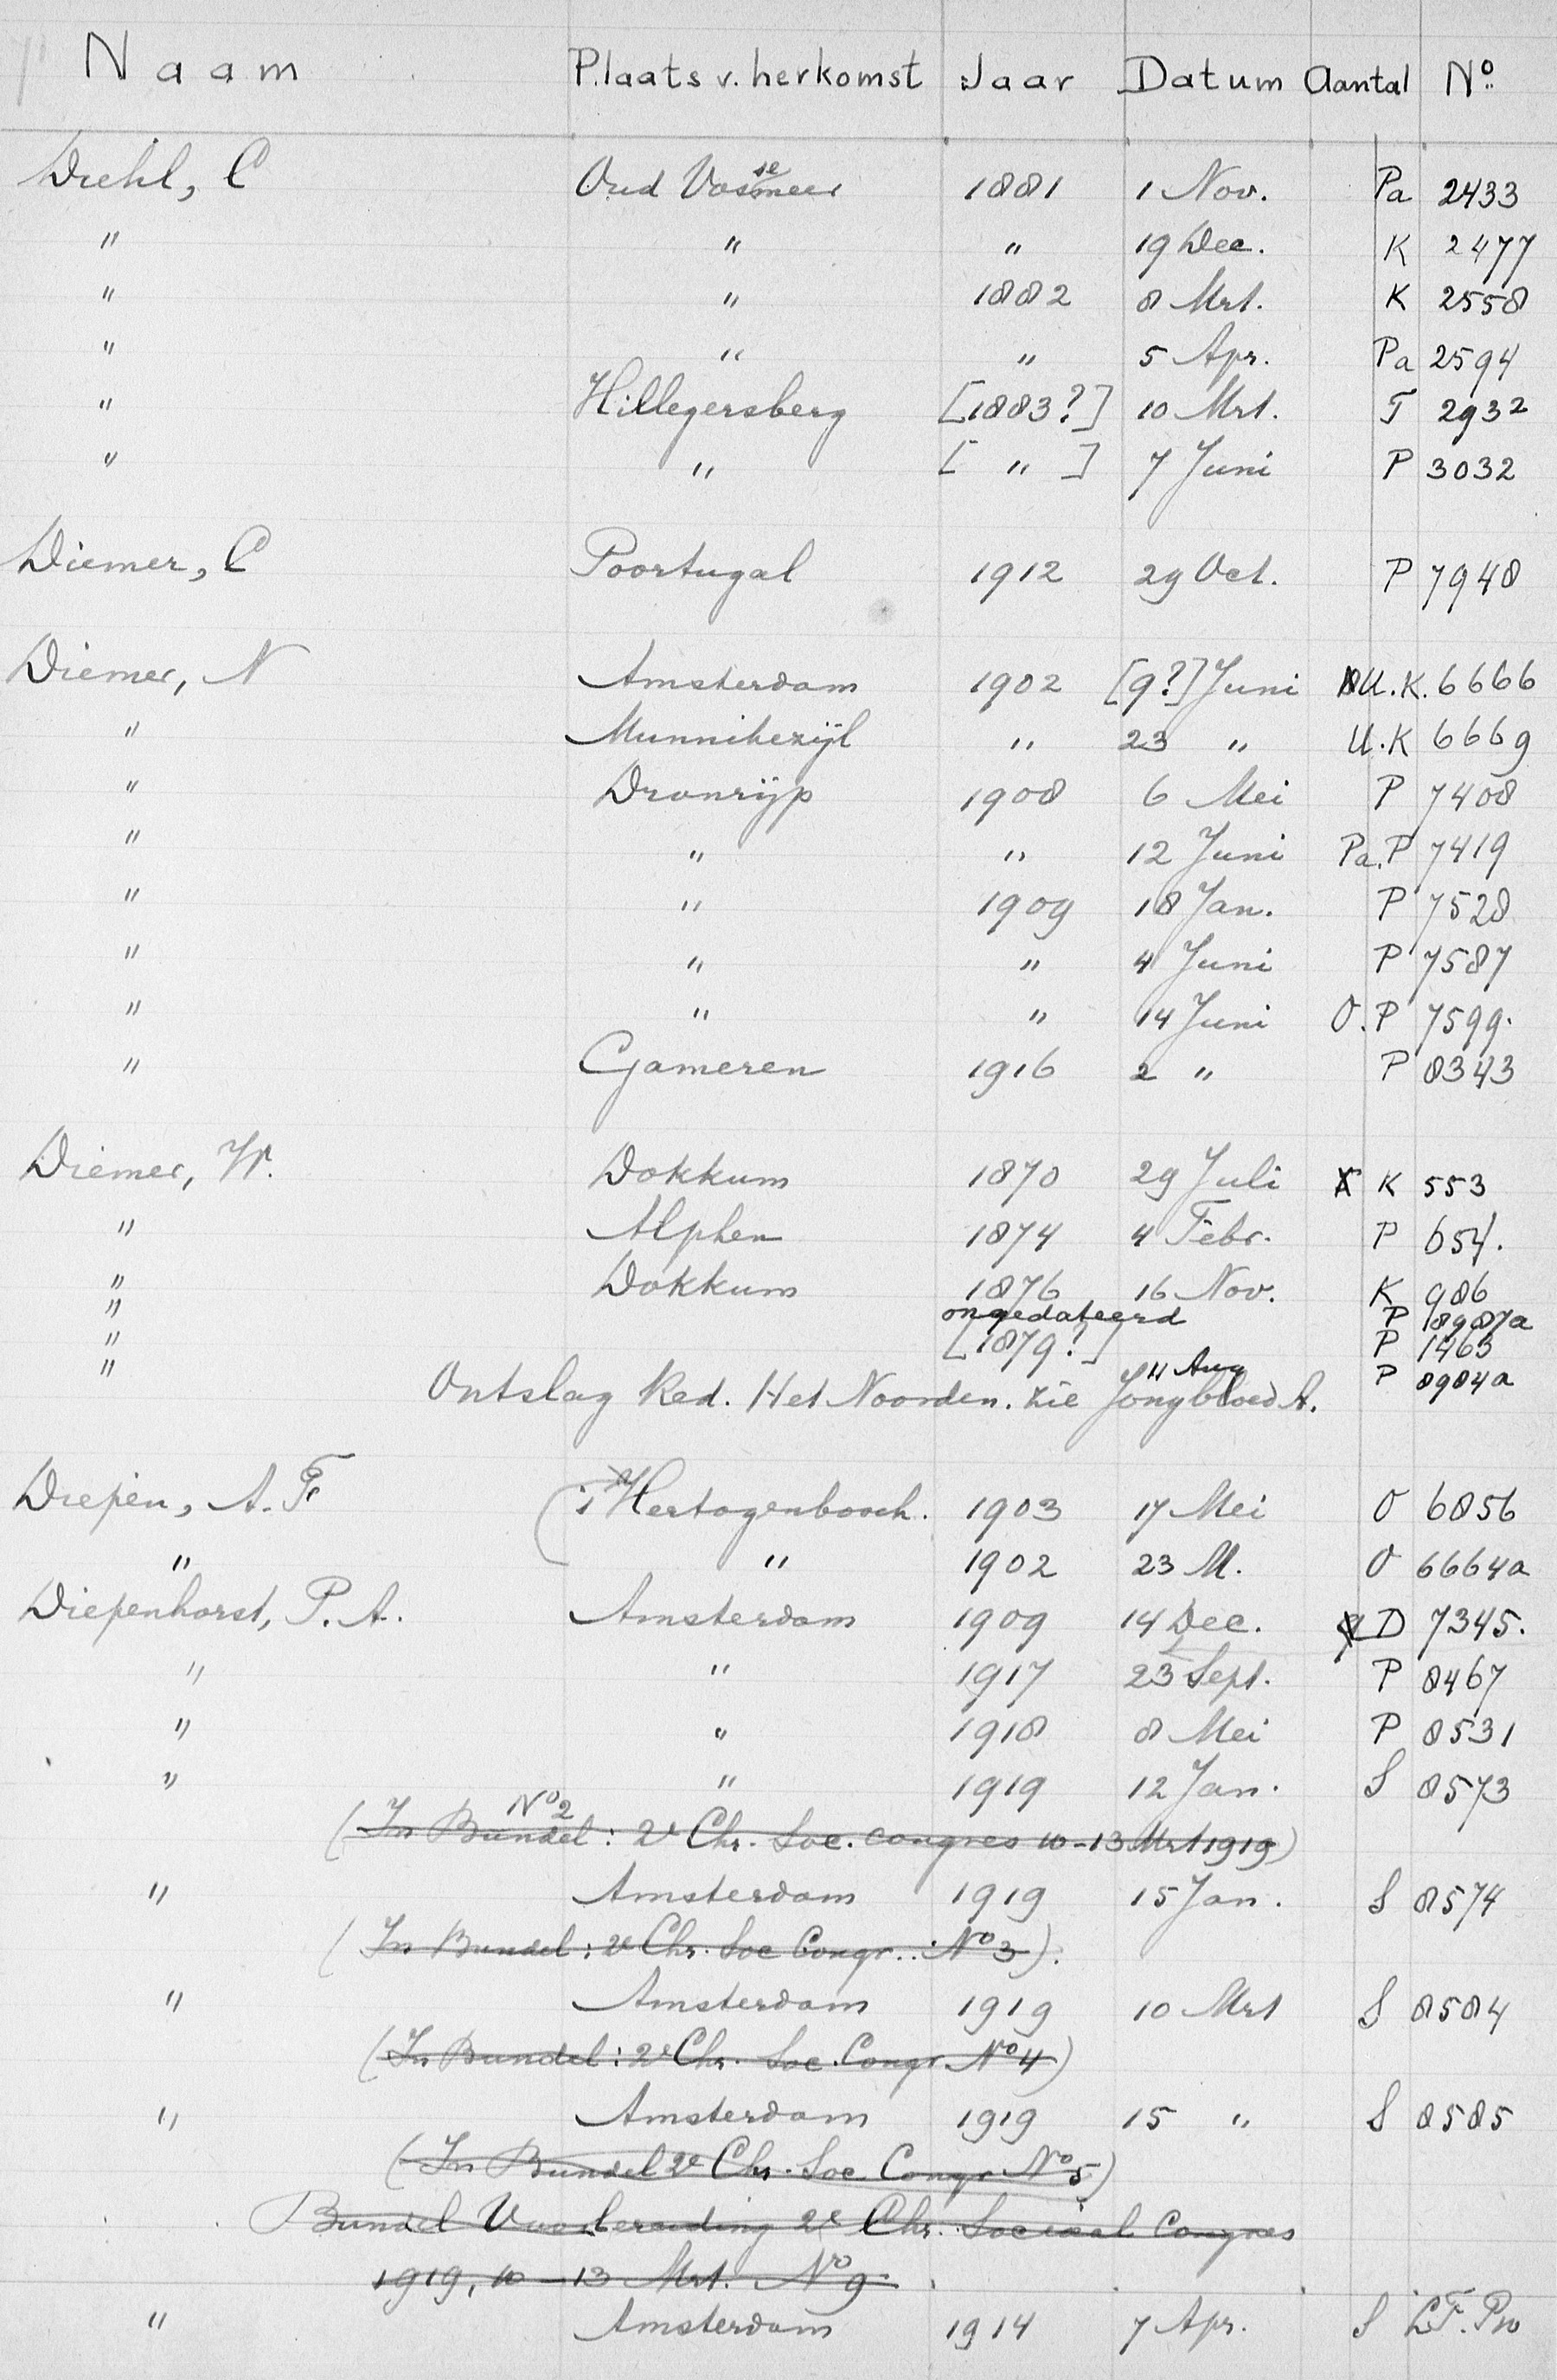 Naam Plaats v. herkomst Jaar Datum Aantal No.
Diehl, C Oud Vossemeer 1881 1 Nov. Pa 2433
" " " 19 Dec. K 2477
" " 1882 8 Mrt. K 2558
" " " 5 Apr. Pa 2594
" Hillegersberg [1883?] 10 Mrt. T 2932
" " [ " ] 7 Juni P 3032
Diemer, C Poortugal 1912 29 Oct. P 7948
Diemer, N Amsterdam 1902 [9?] Juni U.K. 6666
" Munnikezijl " 23 " U.K 6669
" Dronrijp 1908 6 Mei P 7408
" " " 12 Juni Pa. P 7419
" " 1909 18 Jan. P 7528
" " " 4 Juni P 7587
" " " 14 Juni O. P 7599.
" Gameren 1916 2 " P 8343
Diemer, W. Dokkum 1870 29 Juli K 553
" Alphen 1874 4 Febr. P 654.
" Dokkum 1876 16 Nov. K 986
" ongedateerd P 8987a
" [1879?] P 1463
" 11 Aug P 8984a
Ontslag Red. Het Noorden. zie Jongbloed A.
Diepen, A. F. ('s Hertogenbosch. 1903 17 Mei O 6856
" " 1902 23 M. O 6664a
Diepenhorst, P. A. Amsterdam 1909 14 Dec. D 7345.
" " 1917 23 Sept. P 8467
" " 1918 8 Mei P 8531
" " 1919 12 Jan. S 8573
(In Bundel No 2: 2e Chr. Soc. congres 10-13 Mrt 1919)
" Amsterdam 1919 15 Jan. S 8574
(In Bundel: 2e Chr. Soc Congr.. No 3).
" Amsterdam 1919 10 Mrt S 8584
(In Bundel: 2e Chr. Soc. Congr No 4)
" Amsterdam 1919 15 " S 8585
(In Bundel 2e Chr. Soc Congr No 5)
Bundel Voorbereiding 2e Chr. Sociaal Congres
1919, 10-13 Mrt. No 9.
" Amsterdam 1914 7 Apr. S LF.